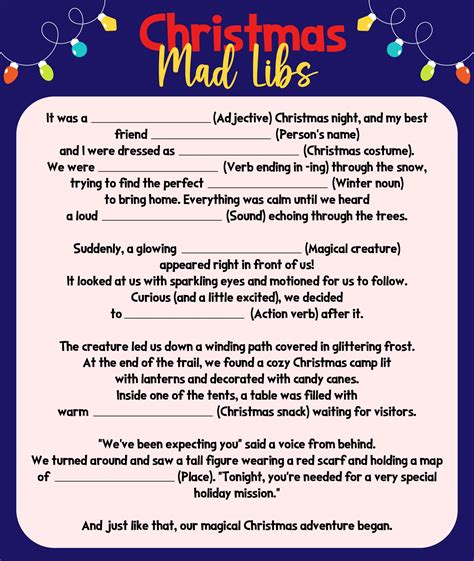 Christmas
Mad Libs
It was a ____________________ (Adjective) Christmas night, and my best
friend ____________________ (Person's name)
and I were dressed as ____________________ (Christmas costume).
We were ____________________ (Verb ending in -ing) through the snow,
trying to find the perfect ____________________ (Winter noun)
to bring home. Everything was calm until we heard
a loud ____________________ (Sound) echoing through the trees.
Suddenly, a glowing ____________________ (Magical creature)
appeared right in front of us!
It looked at us with sparkling eyes and motioned for us to follow.
Curious (and a little excited), we decided
to ____________________ (Action verb) after it.
The creature led us down a winding path covered in glittering frost.
At the end of the trail, we found a cozy Christmas camp lit
with lanterns and decorated with candy canes.
Inside one of the tents, a table was filled with
warm ____________________ (Christmas snack) waiting for visitors.
"We've been expecting you" said a voice from behind.
We turned around and saw a tall figure wearing a red scarf and holding a map
of ____________________ (Place). "Tonight, you're needed for a very special
holiday mission."
And just like that, our magical Christmas adventure began.